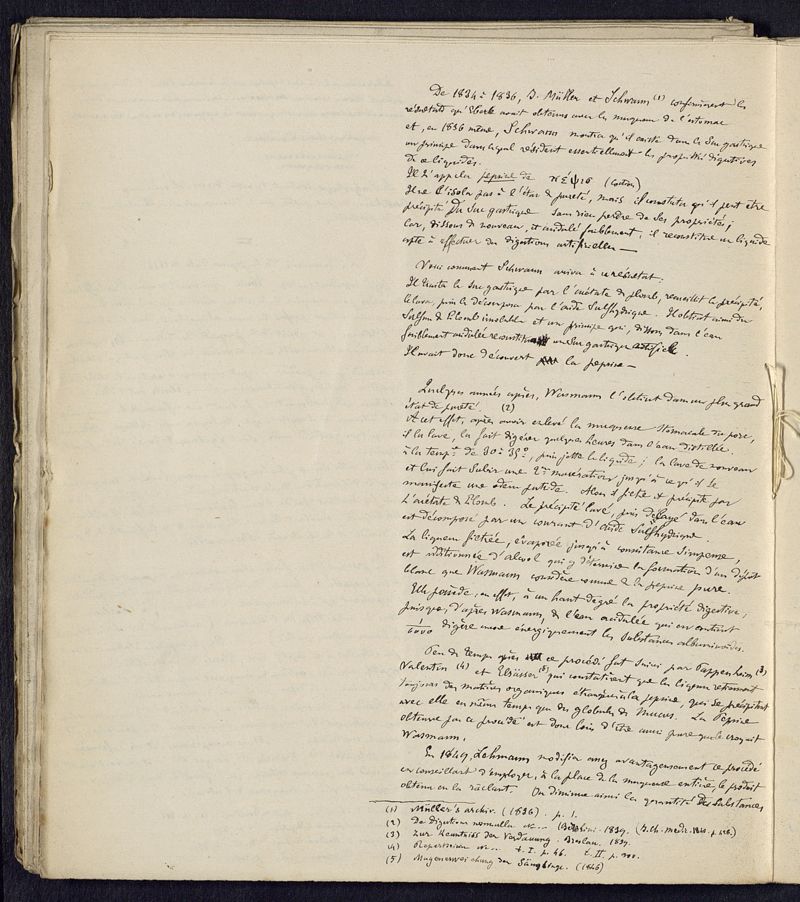 De 1834 à 1836, J. Müller et Schwann (1) confirmèrent les
résultats qu'Eberle avait obtenus avec la muqueuse de l'estomac
et, en 1836 même, Schwann montra qu'il existe dans le Suc gastrique
un principe dans lequel résident essentiellement les propriétés digestives
de ce liquide.
Il l'appela pepsine de πέψισ (coction)
Il ne l'isola pas à l'état de pureté, mais il constata qu'il peut être
précipité Du Suc gastrique sans rien perdre de ses propriétés;
Car, dissous de nouveau, et acidulé faiblement, il reconstitue un liquide
apte à effectuer des digestions artificielles —
Voici comment Schwann arriva à ce résultat:
Il traita le Suc gastrique par l'acétate de plomb, recueillit le précipité,
le lava, puis le décomposa par l'acide Sulfhydrique. Il obtint ainsi du
Sulfure de Plomb insoluble et un principe qui, dissous dans l'eau
faiblement acidulée reconstitua un Suc gastrique artificiel.
Il avait donc découvert la pepsine —
Quelques années après, Wasmann l'obtint dans un plus grand
état de pureté (2)
A cet effet, après avoir enlevé la muqueuse Stomacale du porc,
il la lave, la fait digérer quelques heures dans l'eau distillée
à la temp.re de 30 à 35°, puis jette le liquide; la lave de nouveau
et lui fait Subir une 2me macération jusqu'à ce qu'il se
manifeste une odeur putride. Alors il filtre et précipite par
L'acétate de Plomb. Le précipité lavé, puis délayé dans l'eau
est décomposé par un courant d'acide Sulfhydrique.
La liqueur filtrée, évaporée jusqu'à consistance Sirupeuse,
est additionnée d'alcool qui y détermine la formation d'un dépôt
blanc que Wasmann considère comme de la pepsine pure.
Elle possède, en effet, à un haut degré la propriété digestive,
puisque, d'après Wasmann, de l'eau acidulée qui en contient
1/6000 digère encore énergiquement les Substances albuminoïdes.
Peu de temps après ce procédé fut Suivi par Pappenheim (3)
Valentin (4) et Elsässer (5) qui constatèrent que la liqueur retenait
toujours des matières organiques étrangères à la pepsine, qui se précipitent
avec elle en même temps que des globules de Mucus. La Pepsine
obtenue par ce procédé est donc loin d'être aussi pure que le croyait
Wasmann.
En 1849, Lehmann modifia assez avantageusement ce procédé
en conseillant d'employer, à la place de la muqueuse entière, le produit
obtenu en la râclant. On diminue ainsi la quantité des Substances
(1) Müller's archiv. (1836). p. 1.
(2) De digestione nonnulla &c... (Berolini. 1839.
(3) Zur Kenntniss der Verdauung. Breslau. 1839.
(4) Repertorium &c... t. I. p. 46. t. II. p.
(5) Magenerweichung der Säuglinge. (1846)